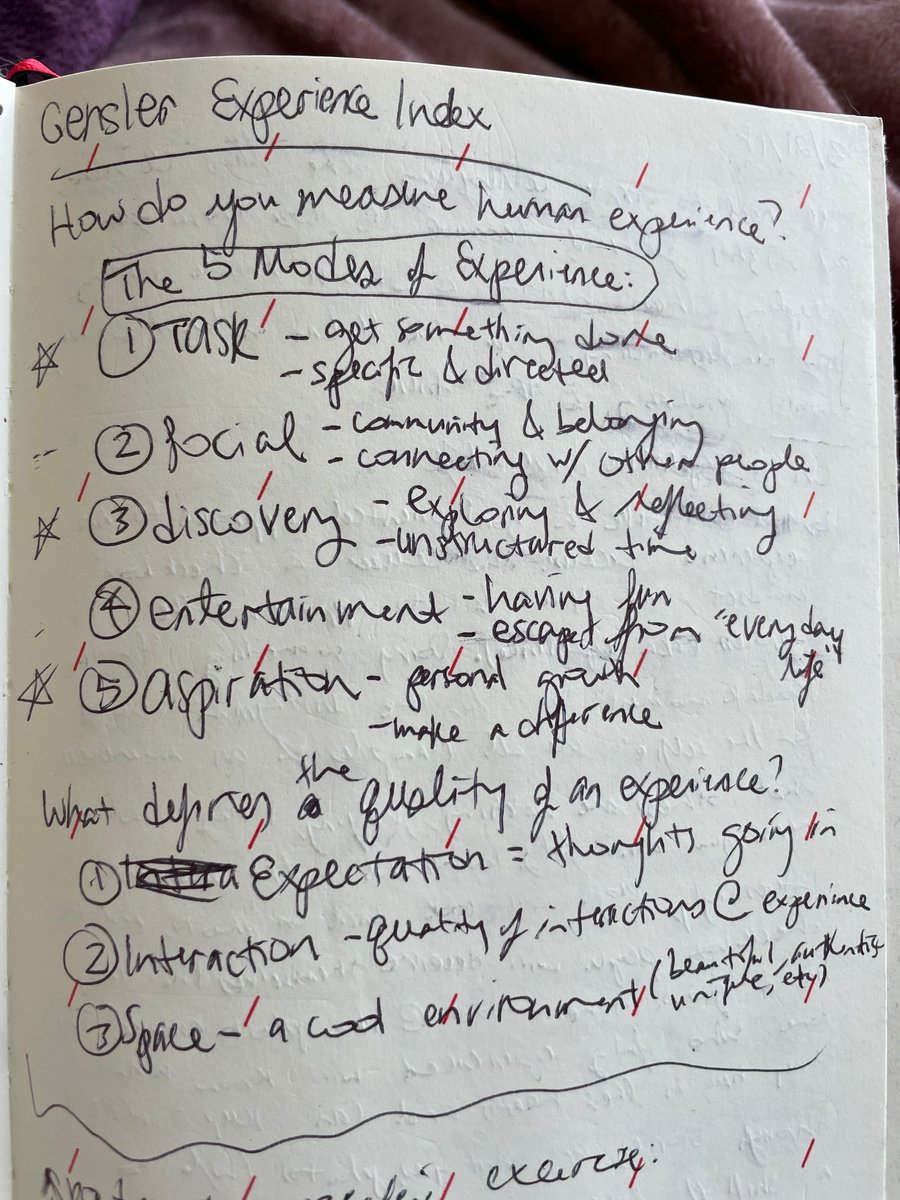 Gensler Experience Index
How do you measure human experience?
The 5 Modes of Experience:
① Task - get something done
- specific & directed
② Social - community & belonging
- connecting w/ other people
③ discovery - exploring & reflecting
- unstructured time
④ entertainment - having fun
- escaped from "everyday
life"
⑤ aspiration - personal growth
- make a difference
the
What defines quality of an experience?
① Expectation = thoughts going in
② Interaction - quality of interactions @ experience
③ Space - a cool environment (beautiful, authentic,
unique, etc)
exercise: